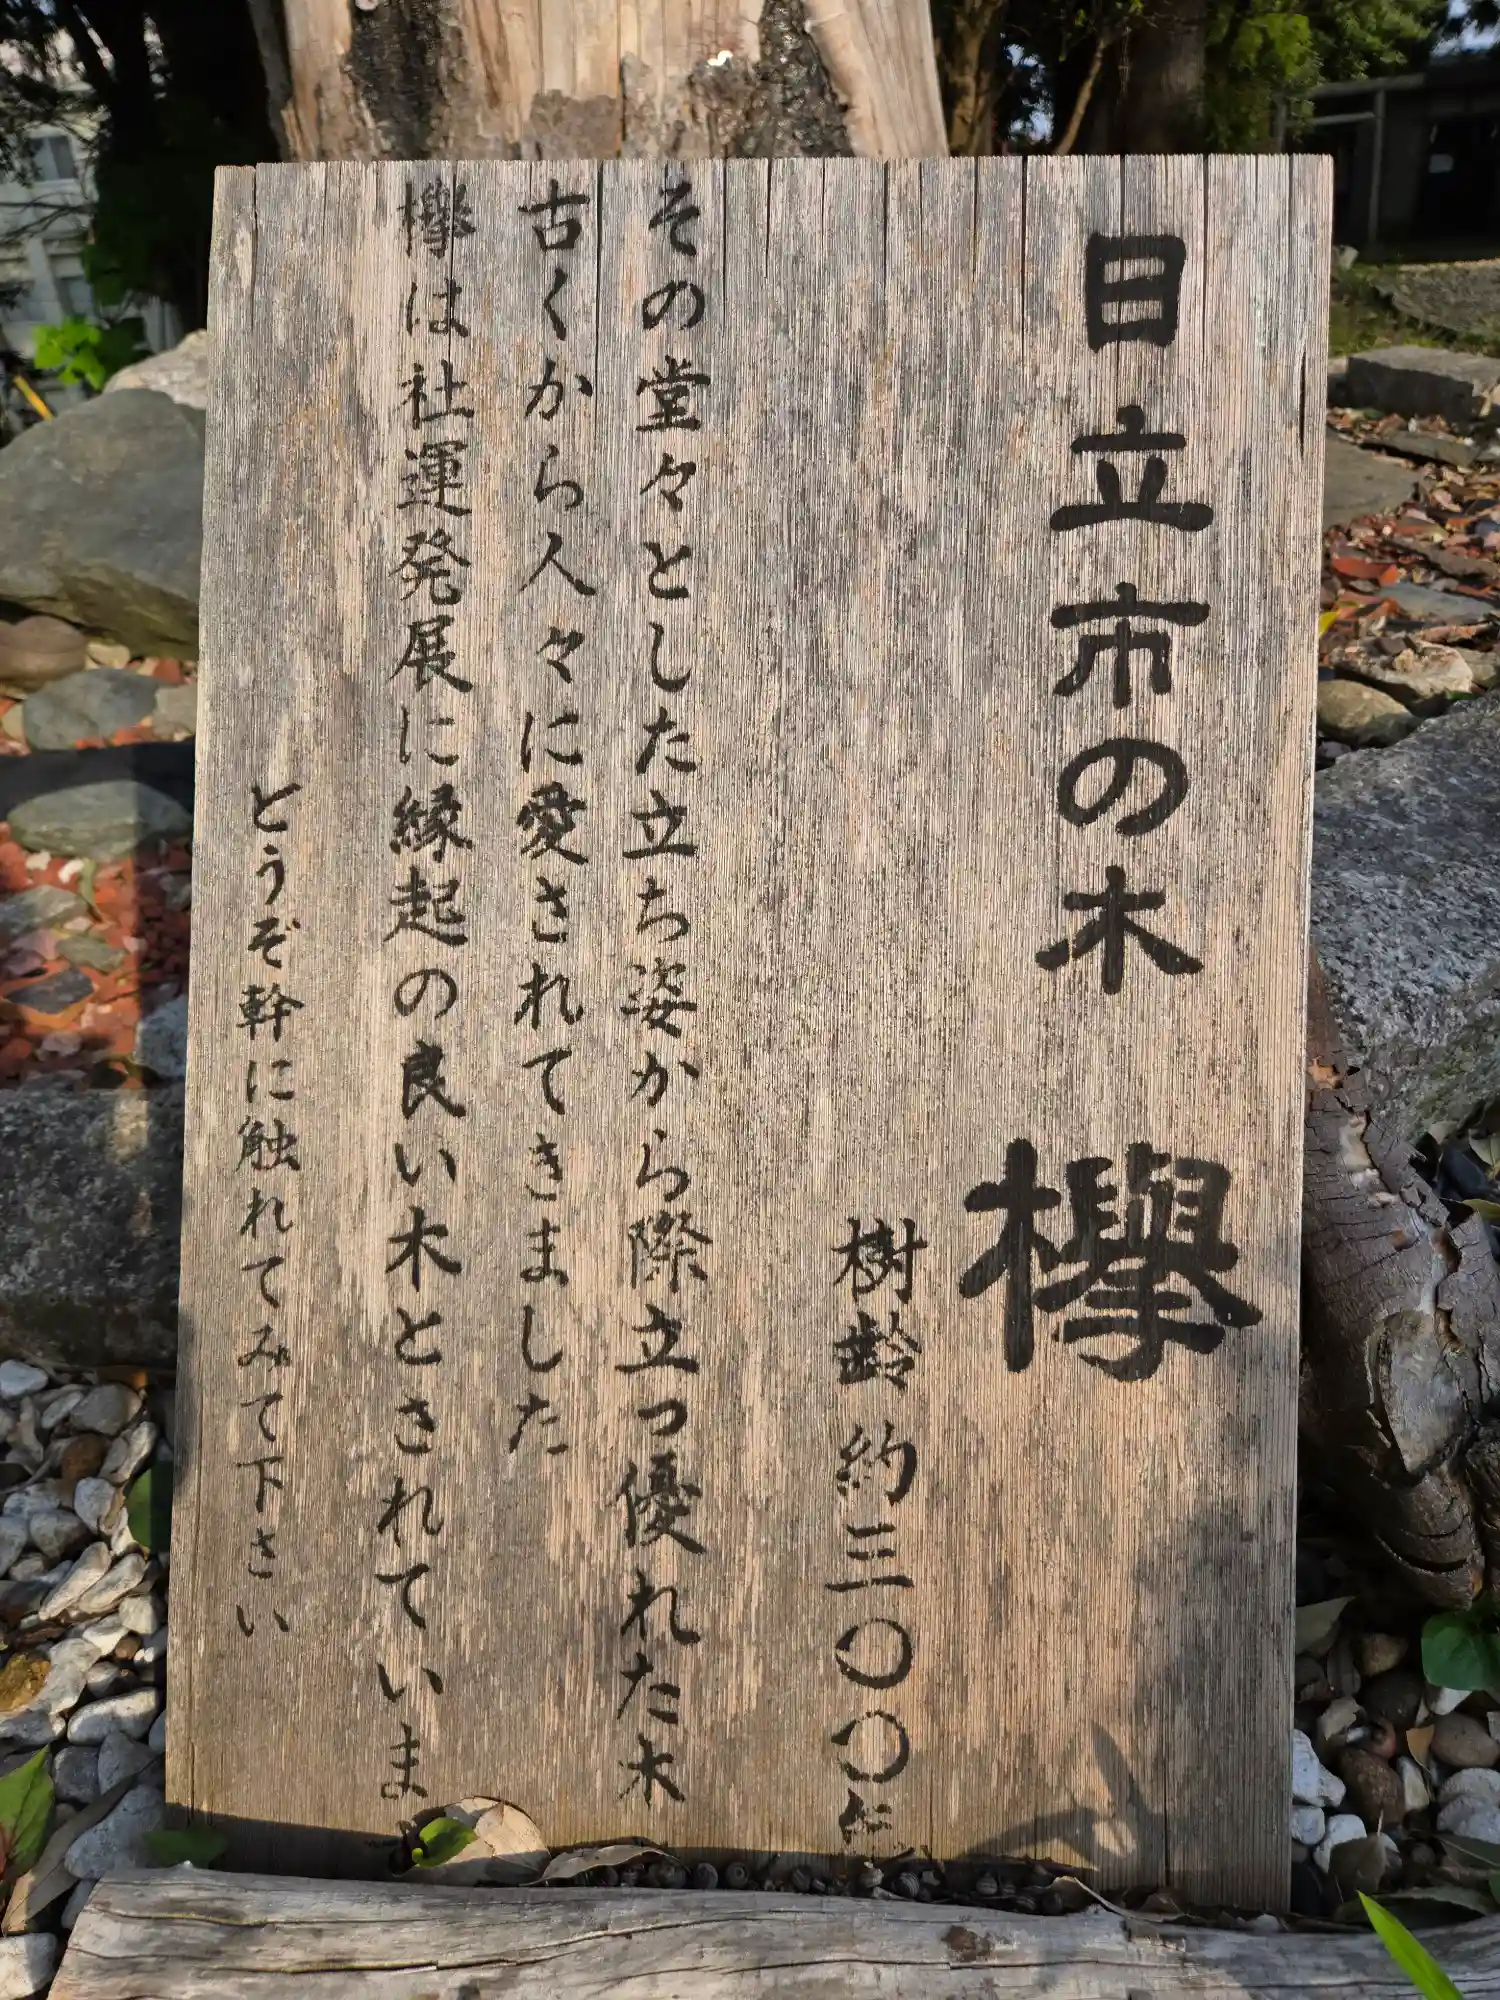 日立市の木 欅
樹齢 約三〇〇年
その堂々とした立ち姿から際立つ優れた木
古くから人々に愛されてきました
欅は社運発展に縁起の良い木とされていま
どうぞ幹に触れてみて下さい